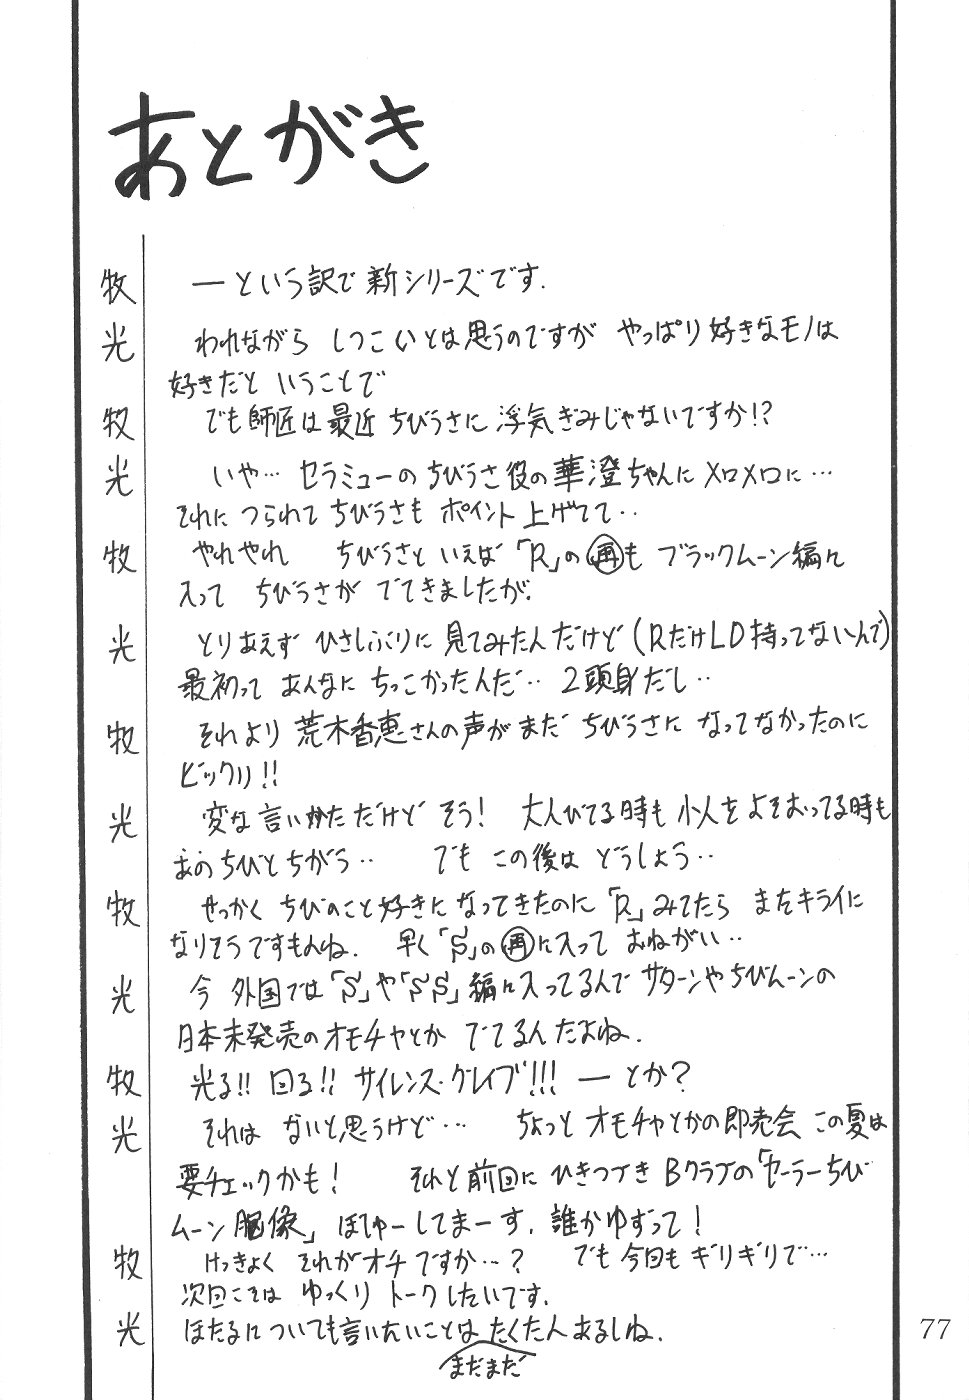 あとがき
牧 ―という訳で新シリーズです.
光 われながら しつこいとは思うのですが やっぱり好きなモノは
好きだと いうことで
牧 でも師匠は最近 ちびうさに 浮気ぎみじゃないですか!?
光 いや… セラミューのちびうさ役の華澄ちゃんにメロメロに…
それに つられて ちびうさも ポイント上げてて‥
牧 やれやれ ちびうさと いえば「R」の㊢も ブラックムーン編に
入って ちびうさが でてきましたが.
光 とりあえず ひさしぶりに 見てみたんだけど(RだけLD持ってないんで)
最初って あんなに ちっこかったんだ‥ 2頭身だし‥
牧 それより 荒木香恵さんの声がまだ ちびうさに なってなかったのに
ビックリ!!
光 変な言いかただけど そう! 大人びてる時も 小人をよそおってる時も
あのちびとちがう‥ でも この後は どうしよう‥
牧 せっかく ちびのこと好きになってきたのに「R」みてたら またキライに
なりそうですもんね. 早く「S」の再に入って おねがい‥
光 今 外国では「S」や「SS」編に入ってるんで サターンやちびムーンの
日本未発売のオモチャとか でてるんだよね.
牧 光る!! 回る!! サイレンス・グレイブ!!! ―とか?
光 それは ないと思うけど… ちょっと オモチャとかの即売会 この夏は
要チェックかも! それと前回に ひきつづき Bクラブの「セーラーちび
ムーン胸像」ぼしゅーしてまーす. 誰かゆずって!
牧 けっきょく それがオチですか…? でも今回も ギリギリで…
次回こそは ゆっくり トークしたいです.
光 ほたるについても言いたいことは まだまだ たくさん あるしね.
77